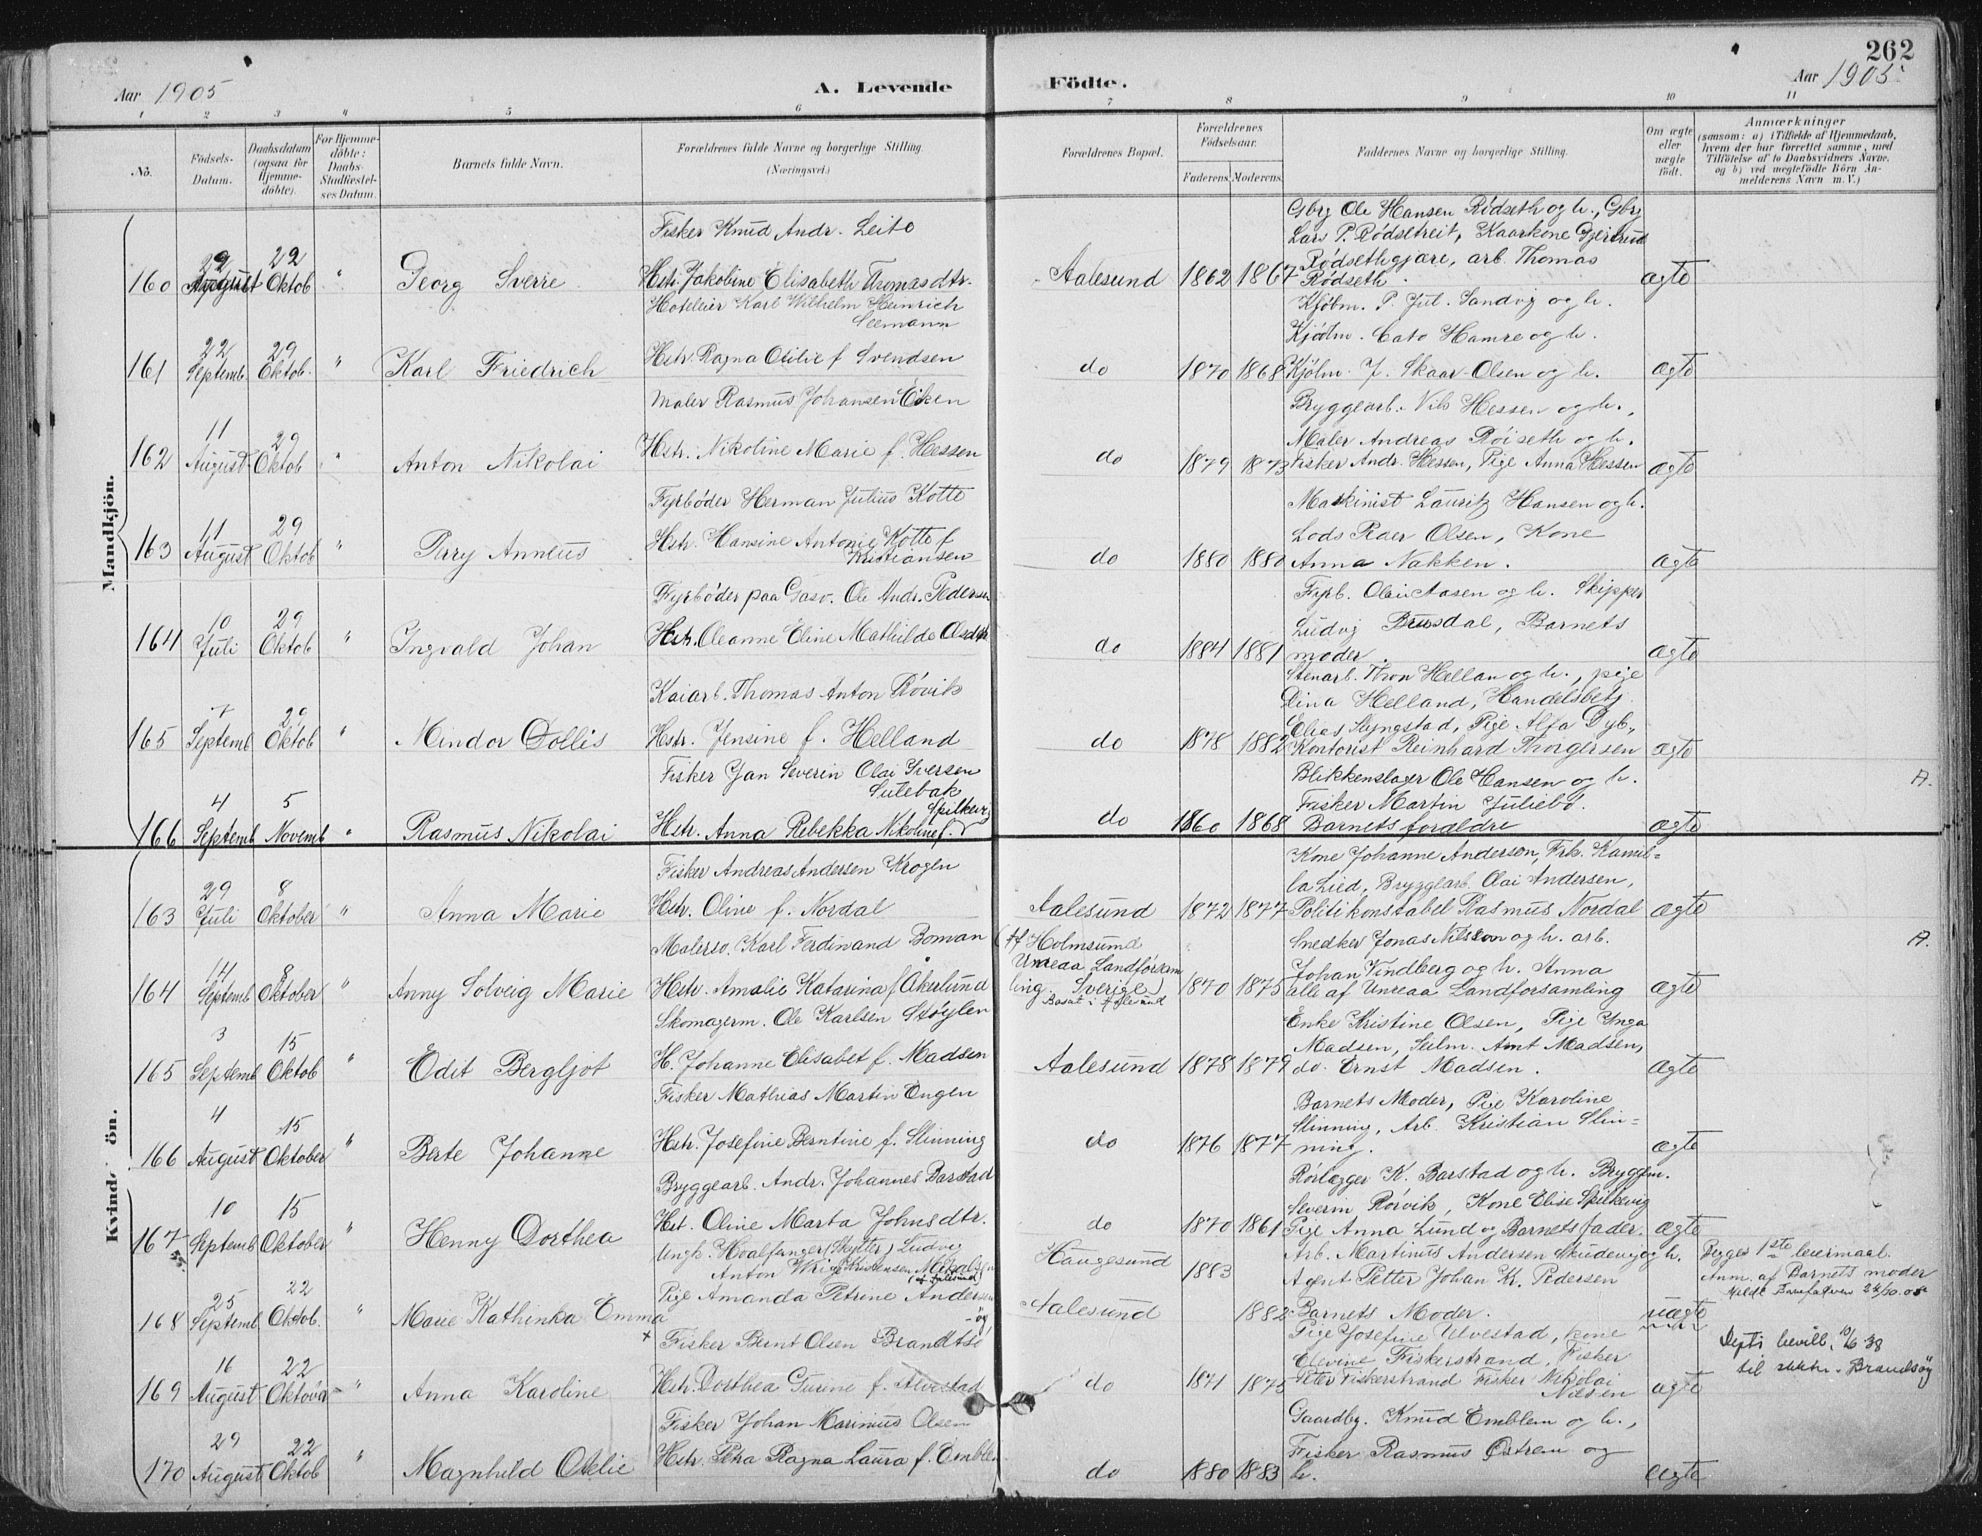 262
Aar 1905
A. Levende Födte.
Aar 1905
1 2 3 " 5 6 7 8 9 10 11
No.
Födsels-Datum.
Daabsdatum (ogsaa for Hjemme-döbte).
For Hjemme-döbte: Daabs-Stadfæstel-ses Datum.
Barnets fulde Navn.
Forældrenes fulde Navne og borgerlige Stilling (Næringsvei.)
Forældrenes Bopæl.
Forældrenes Födselsaar.
Faderens. Moderens.
Faddernes Navne og borgerlige Stilling.
Om ægte eller uægte födt.
Anmærkninger
(saasom: a) i Tilfælde af Hjemmedaab, hvem der har forrettet samme, med Tilföielse af to Daabsvidners Navne, og b) ved uægtefödte Börn An-melderens Navn m. V.)
Mandkjön.
160 29 August 22 Oktob " Georg Sverre
Fisker Knud Andr. Leite
Hstr. Jakobine Elisabeth Thomasdtr.
Aalesund 1862 1867
Gbrg Ole Hansen Rødseth og h., Gbrg
Lars P. Rødsetreit, Kaarkone Gjertrud
Rødsethgjære, arb. Thomas
Rødseth.
ægte
161 22 Septemb. 29 Oktob. " Karl Friedrich
Hoteleier Karl Wilhelm Heinrich
Seemann
Hstr. Ragna Otilie f Svendsen
do 1870 1868
Kjøbm. P. Jul. Sandvig og h.
Kjøbm. Cato Hamre og h.
Kjøbm. J. Skaar-Olsen og h.
ægte
162 11 August 29 Oktob " Anton Nikolai
Maler Rasmus Johansen Eiken
Hstr. Nikoline Marie f. Hessen
do 1879 1873
Bryggearb. Nils Hessen og h.,
Maler Andreas Røiseth og h.
Fisker Andr. Hessen, Pige Anna Hessen
ægte
163 11 August 29 Oktob " Perry Anneus
Fyrbøder Herman Julius Kotte
Hstr. Hansine Antonie Kotte f
Kristiansen
do 1880 1880
Maskinist Lauritz Hansen og h.
Lods Roer Olsen, Kone
Anna Nakken.
ægte
164 10 Juli 29 Oktob " Ingvald Johan
Fyrbøder paa Gasv. Ole Andr. Pedersen
Hstr. Oleanne Eline Mathilde Olsdtr
do 1884 1881
Fyrb. Olai Aasen og h. Skipper
Ludvig Brusdal, Barnets
moder.
ægte
165 7 Septemb 29 Oktob " Mindor Dollis
Kaiarb. Thomas Anton Røvik
Hstr. Jensine f. Helland
do 1878 1882
Stenarb. Thon Hellan og h., pige
Dina Helland, Handelsbetj.
Elias Slyngstad, Pige Alfa Dyb,
Kontorist Reinhard Thorgersen
ægte
166 4 Septemb 5 Novemb " Rasmus Nikolai
Fisker Jan Severin Olai Iversen
Sulebak
Hstr. Anna Rebekka Nikoline f. Spilkevig
do 1860 1868
Blikkenslager Ole Hansen og h.
Fisker Martin Juliebø.
Barnets forældre
ægte
A.
Kvindekjön.
163 29 Juli 8 Oktober " Anna Marie
Fisker Andreas Andersen Krogen
Hstr. Oline f. Nordal
Aalesund 1872 1877
Kone Johanne Andersen, Frk. Kamil=
la Lied, Bryggearb. Olai Andersen,
Politikonstabel Rasmus Nordal
ægte
164 4 Septemb 8 Oktober " Anny Solveig Marie
Malersv. Karl Ferdinand Boman
Hstr. Amalie Katarina f Åkerlund
(af Holmsund
Umeaa Landförsam
ling. Sverige)
Bosat i Aalesund
1870 1875
Snedker Jonas Nilsson og h. arb.
Johan Vindberg og h. Anna
alle af Umeaa Landforsamling
ægte
A.
165 3 Septemb 15 Oktob " Edit Bergljot
Skomagerm. Ole Karlsen Støylen
H. Johanne Elisabet f. Madsen
Aalesund 1878 1879
Enke Kristine Olsen, Pige Inga
Madsen, Seilm. Amt Madsen,
do. Ernst Madsen.
ægte
166 4 August 15 Oktober " Berte Johanne
Fisker Mathias Martin Engen
Hstr. Josefine Berntine f. Slinning
do 1876 1877
Barnets Moder, Pige Karoline
Slinning, Arb. Kristian Slin=
ning.
ægte
167 10 Septemb 15 Oktober " Henny Dorthea
Bryggearb. Andr. Johannes Barstad
Hst. Oline Marta Johnsdtr.
do 1870 1861
Rørlægger K. Barstad og h. Bryggm.
Severin Rørvik, Kone Elise Spilkevig
Pige Anna Lund og Barnets fader.
ægte
168 25 Septemb 22 Oktob. " Marie Kathinka Emma
Ungk. Hvalfanger (Skytter) Ludvig
Anton Kristensen
(af Aalesund)
Pige Amanda Petrine Andersen
Haugesund 1883
Aalesund 1882
Arb. Martinus Andersen Skudevig og h.
Agent Petter Johan Kr. Pedersen
Barnets Moder.
uægte
Begges 1ste leiermaal.
Anm. af Barnets moder
169 16 August 22 Oktober " Anna Karoline
Fisker Bernt Olsen Brandtsø
-øy
Hstr. Dorthea Gurine f. Ulvestad
do 1871 1875
Pige Josefine Ulvestad, kone
Elevine Fiskerstrand, Fisker
Peter Fiskerstrand Fisker Nikolai
Nilsen
ægte
Depts bevill. 10/6 38
til slektn. Brandsøy
170 29 August 22 Oktob " Magnhild Otelie
Fisker Johan Marinius Olsen
Hstr. Petra Ragna Laura f. Emblem
do 1880 1883
Gaardbr. Knud Emblem og h.,
Fisker Rasmus Østrem og
h.
ægte